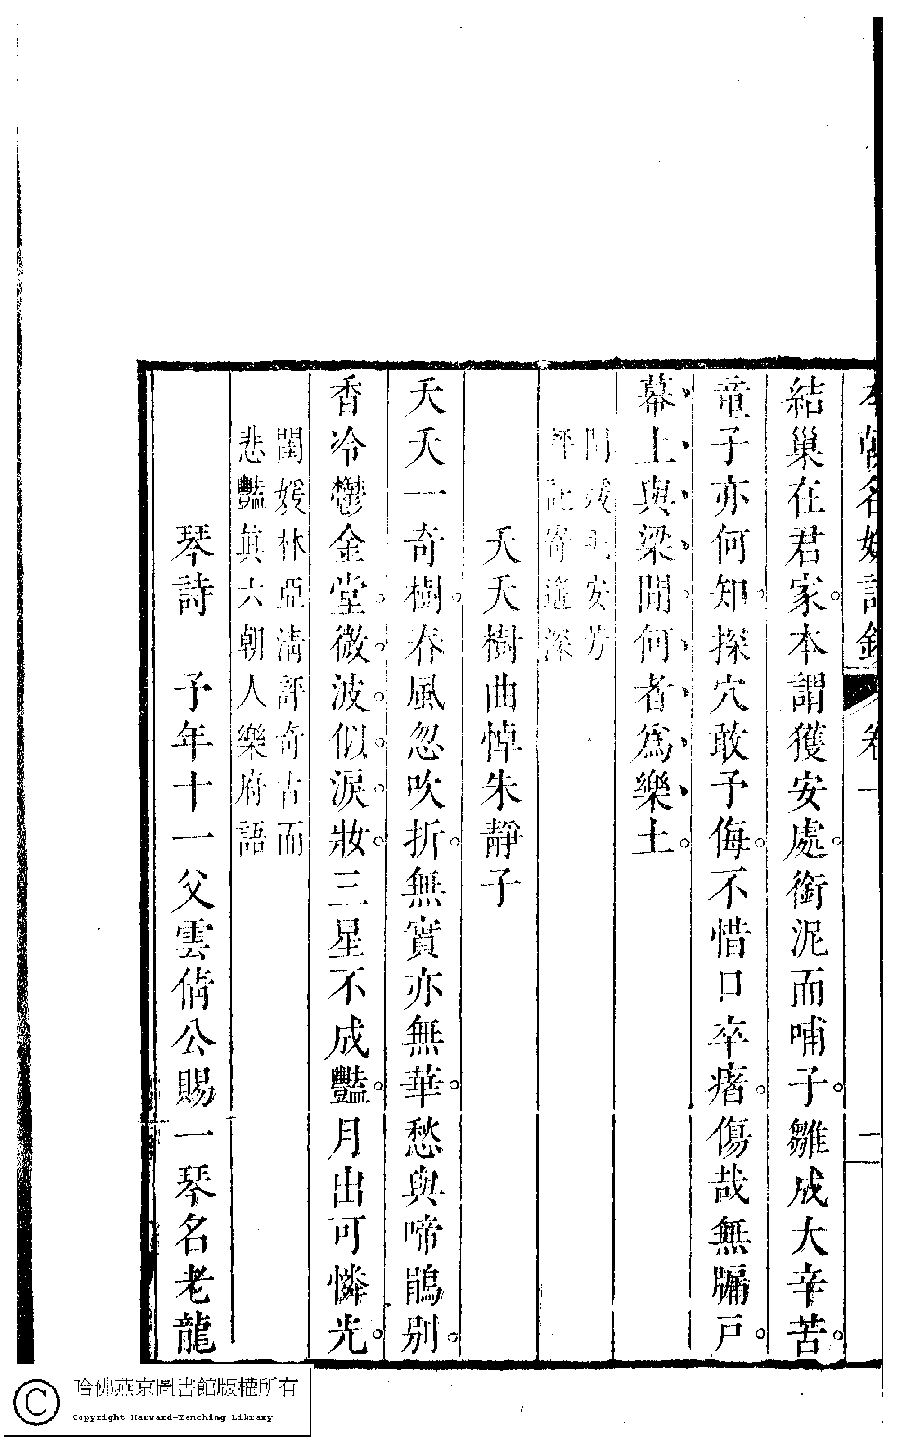 本朝名媛詩鈔 卷一 二
結巢在君家。本謂獲安處。銜泥而哺子。雛成大辛苦。
童子亦何知。探穴敢予侮。不惜口卒瘏。傷哉無牖戶。
幕上與梁間。何者爲樂土。
安芳
評託寄遙深
夭夭樹曲悼朱靜子
夭夭一奇樹。春風忽吹折。無實亦無華。愁與啼鵑別。
香冷鬱金堂。微波似淚妝。三星不成豔。月出可憐光。
閨媛林亞清評奇古而
悲豔眞六朝人樂府語
琴詩 予年十一父雲倩公賜一琴名老龍
哈佛燕京圖書館版權所有
Copyright Harvard-Yenching Library